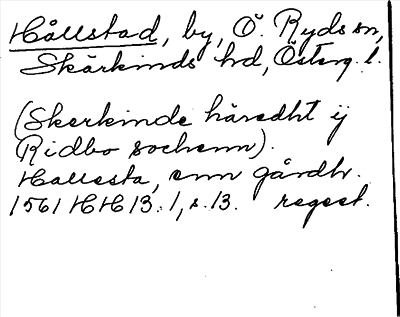 Hållstad, by, Ö. Ryds sn,
Skärkinds hd, Österg. l.
(Skerkinde häredht ij
Ridbo sochenn).
Hallesta, enn gårdh.
1561 HH B: 1, s. 13. regest.